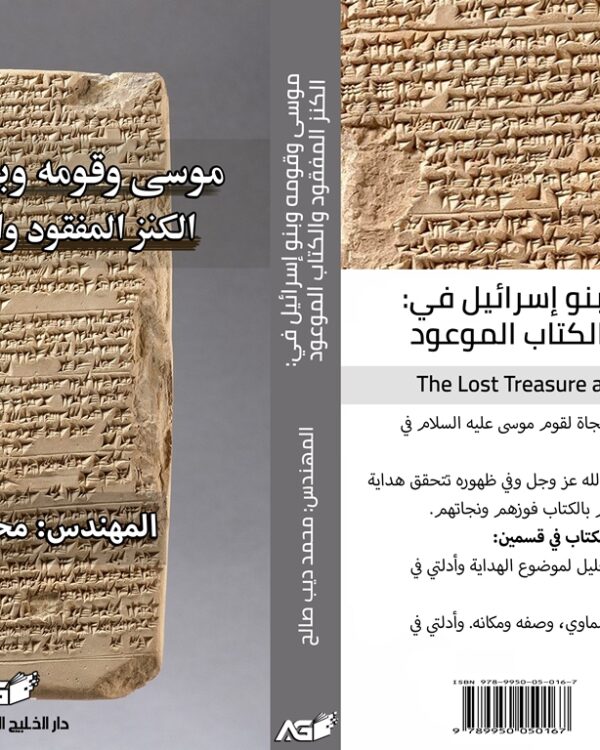 موسى وقومه وب
الكنز المفقود وا
المهندس: مح
AG
دار الخليج ال
موسى وقومه وبنو إسرائيل في:
الكنز المفقود والكتاب الموعود
المهندس: محمد ديب صالح
AG
بنو إسرائيل في:
لكتاب الموعود
The Lost Treasure a
جاة لقوم موسى عليه السلام في
لله عز وجل وفي ظهوره تتحقق هداية
م بالكتاب فوزهم ونجاتهم.
كتاب في قسمين:
ليل لموضوع الهداية وأدلتي في
سماوي، وصفه ومكانه. وأدلتي في
ISBN 978-9950-05-016-7
9 789950 050167